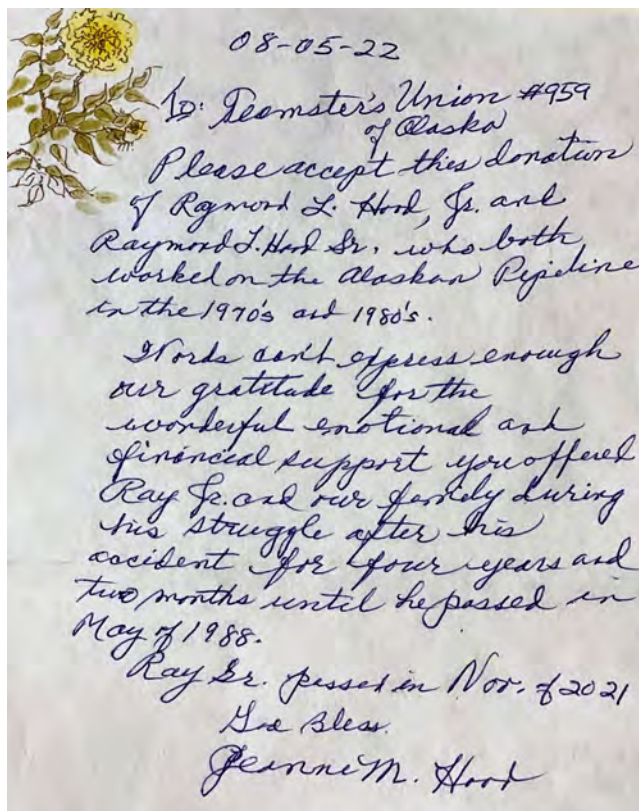 08-05-22
To: Teamster's Union #959
of Alaska
Please accept this donation
of Raymond L. Hood, Jr. and
Raymond L. Hood Sr. who both
worked on the Alaskan Pipeline
in the 1970's and 1980's.
Words can't express enough
our gratitude for the
wonderful emotional and
financial support you offered
Ray Jr. and our family during
his struggle after his
accident for four years and
two months until he passed in
May of 1988.
Ray Sr. passed in Nov. of 2021
God Bless.
Jeanne M. Hood